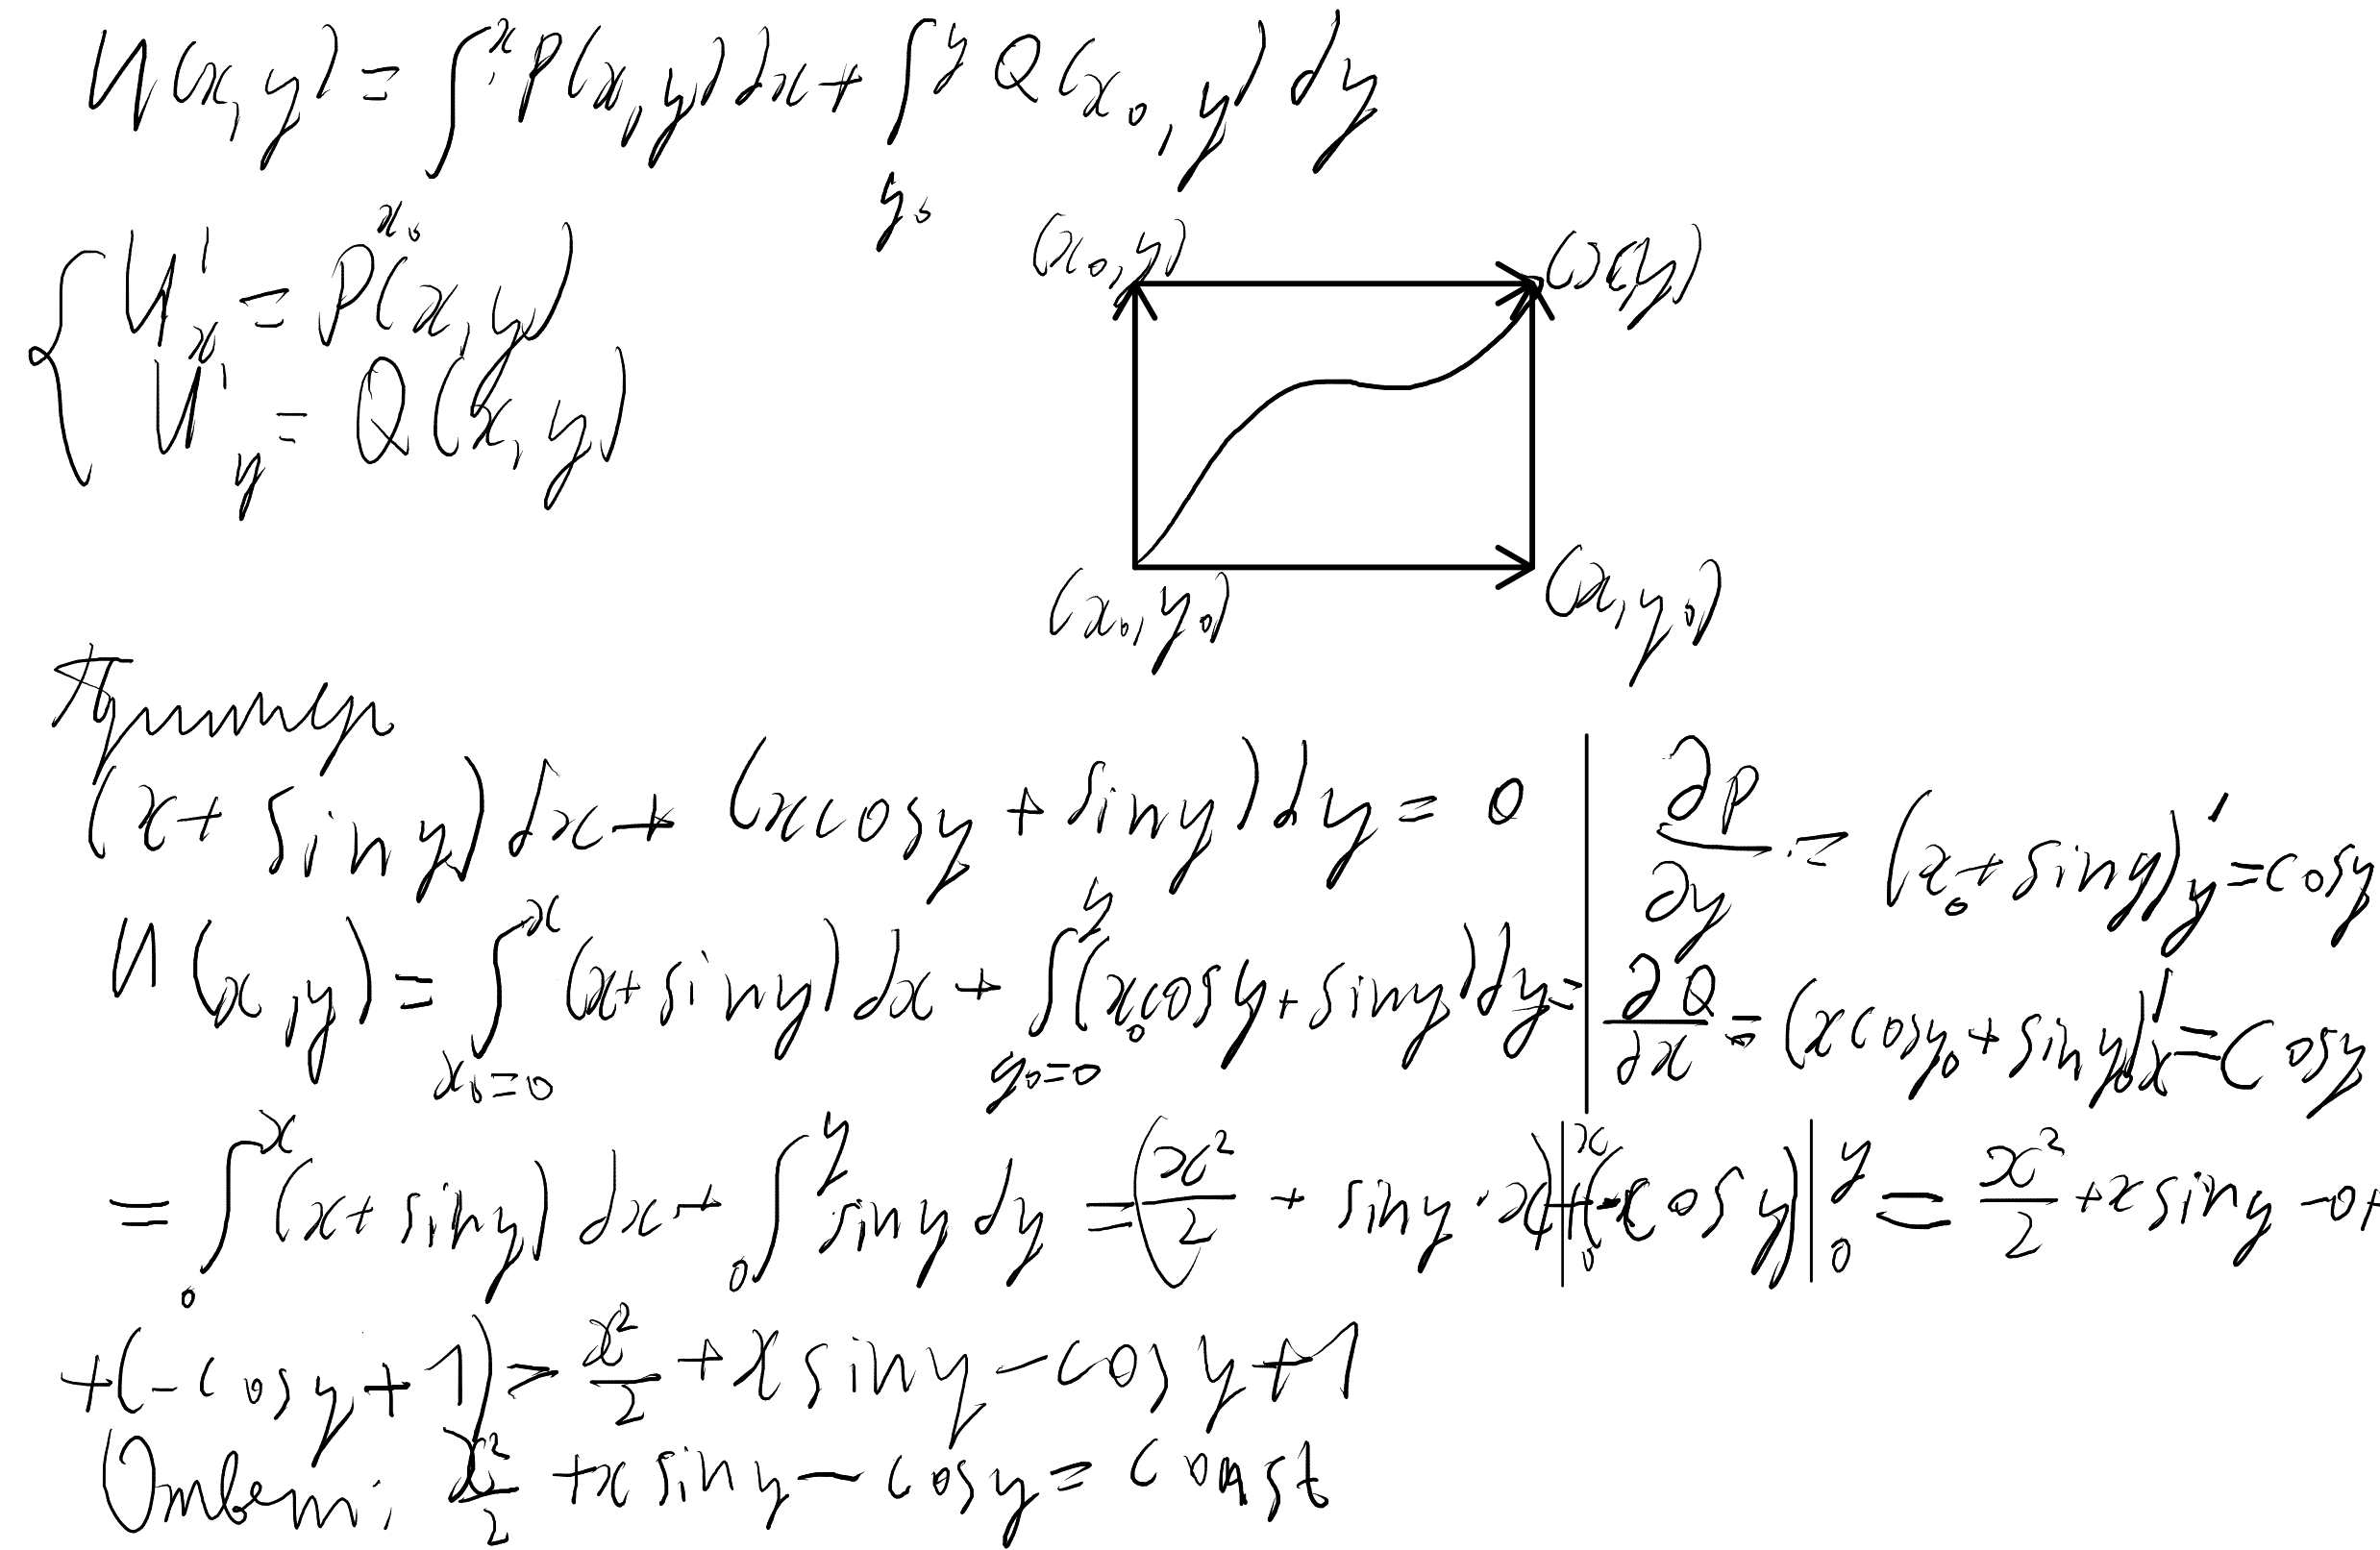 U(x,y) = ∫_{x₀}^{x} P(x,y)dx + ∫_{y₀}^{y} Q(x₀,y)dy
{ U'_x = P(x,y)
U'_y = Q(x,y)
(x₀,y) (x,y)
(x₀,y₀) (x,y₀)
Пример
(x + sin y)dx + (x cos y + sin y)dy = 0 | ∂P/∂y = (x + sin y)'_y = cos y
U(x,y) = ∫_{x₀=0}^{x} (x + sin y)dx + ∫_{y₀=0}^{y} (x₀ cos y + sin y)dy = | ∂Q/∂x = (x cos y + sin y)'_x = cos y
= ∫_0^x (x + sin y)dx + ∫_0^y sin y dy = (x²/2 + sin y · x)|_0^x + (-cos y)|_0^y = x²/2 + x sin y - 0 +
+ (-cos y + 1) = x²/2 + x sin y - cos y + 1
Ответ: x²/2 + x sin y - cos y = const